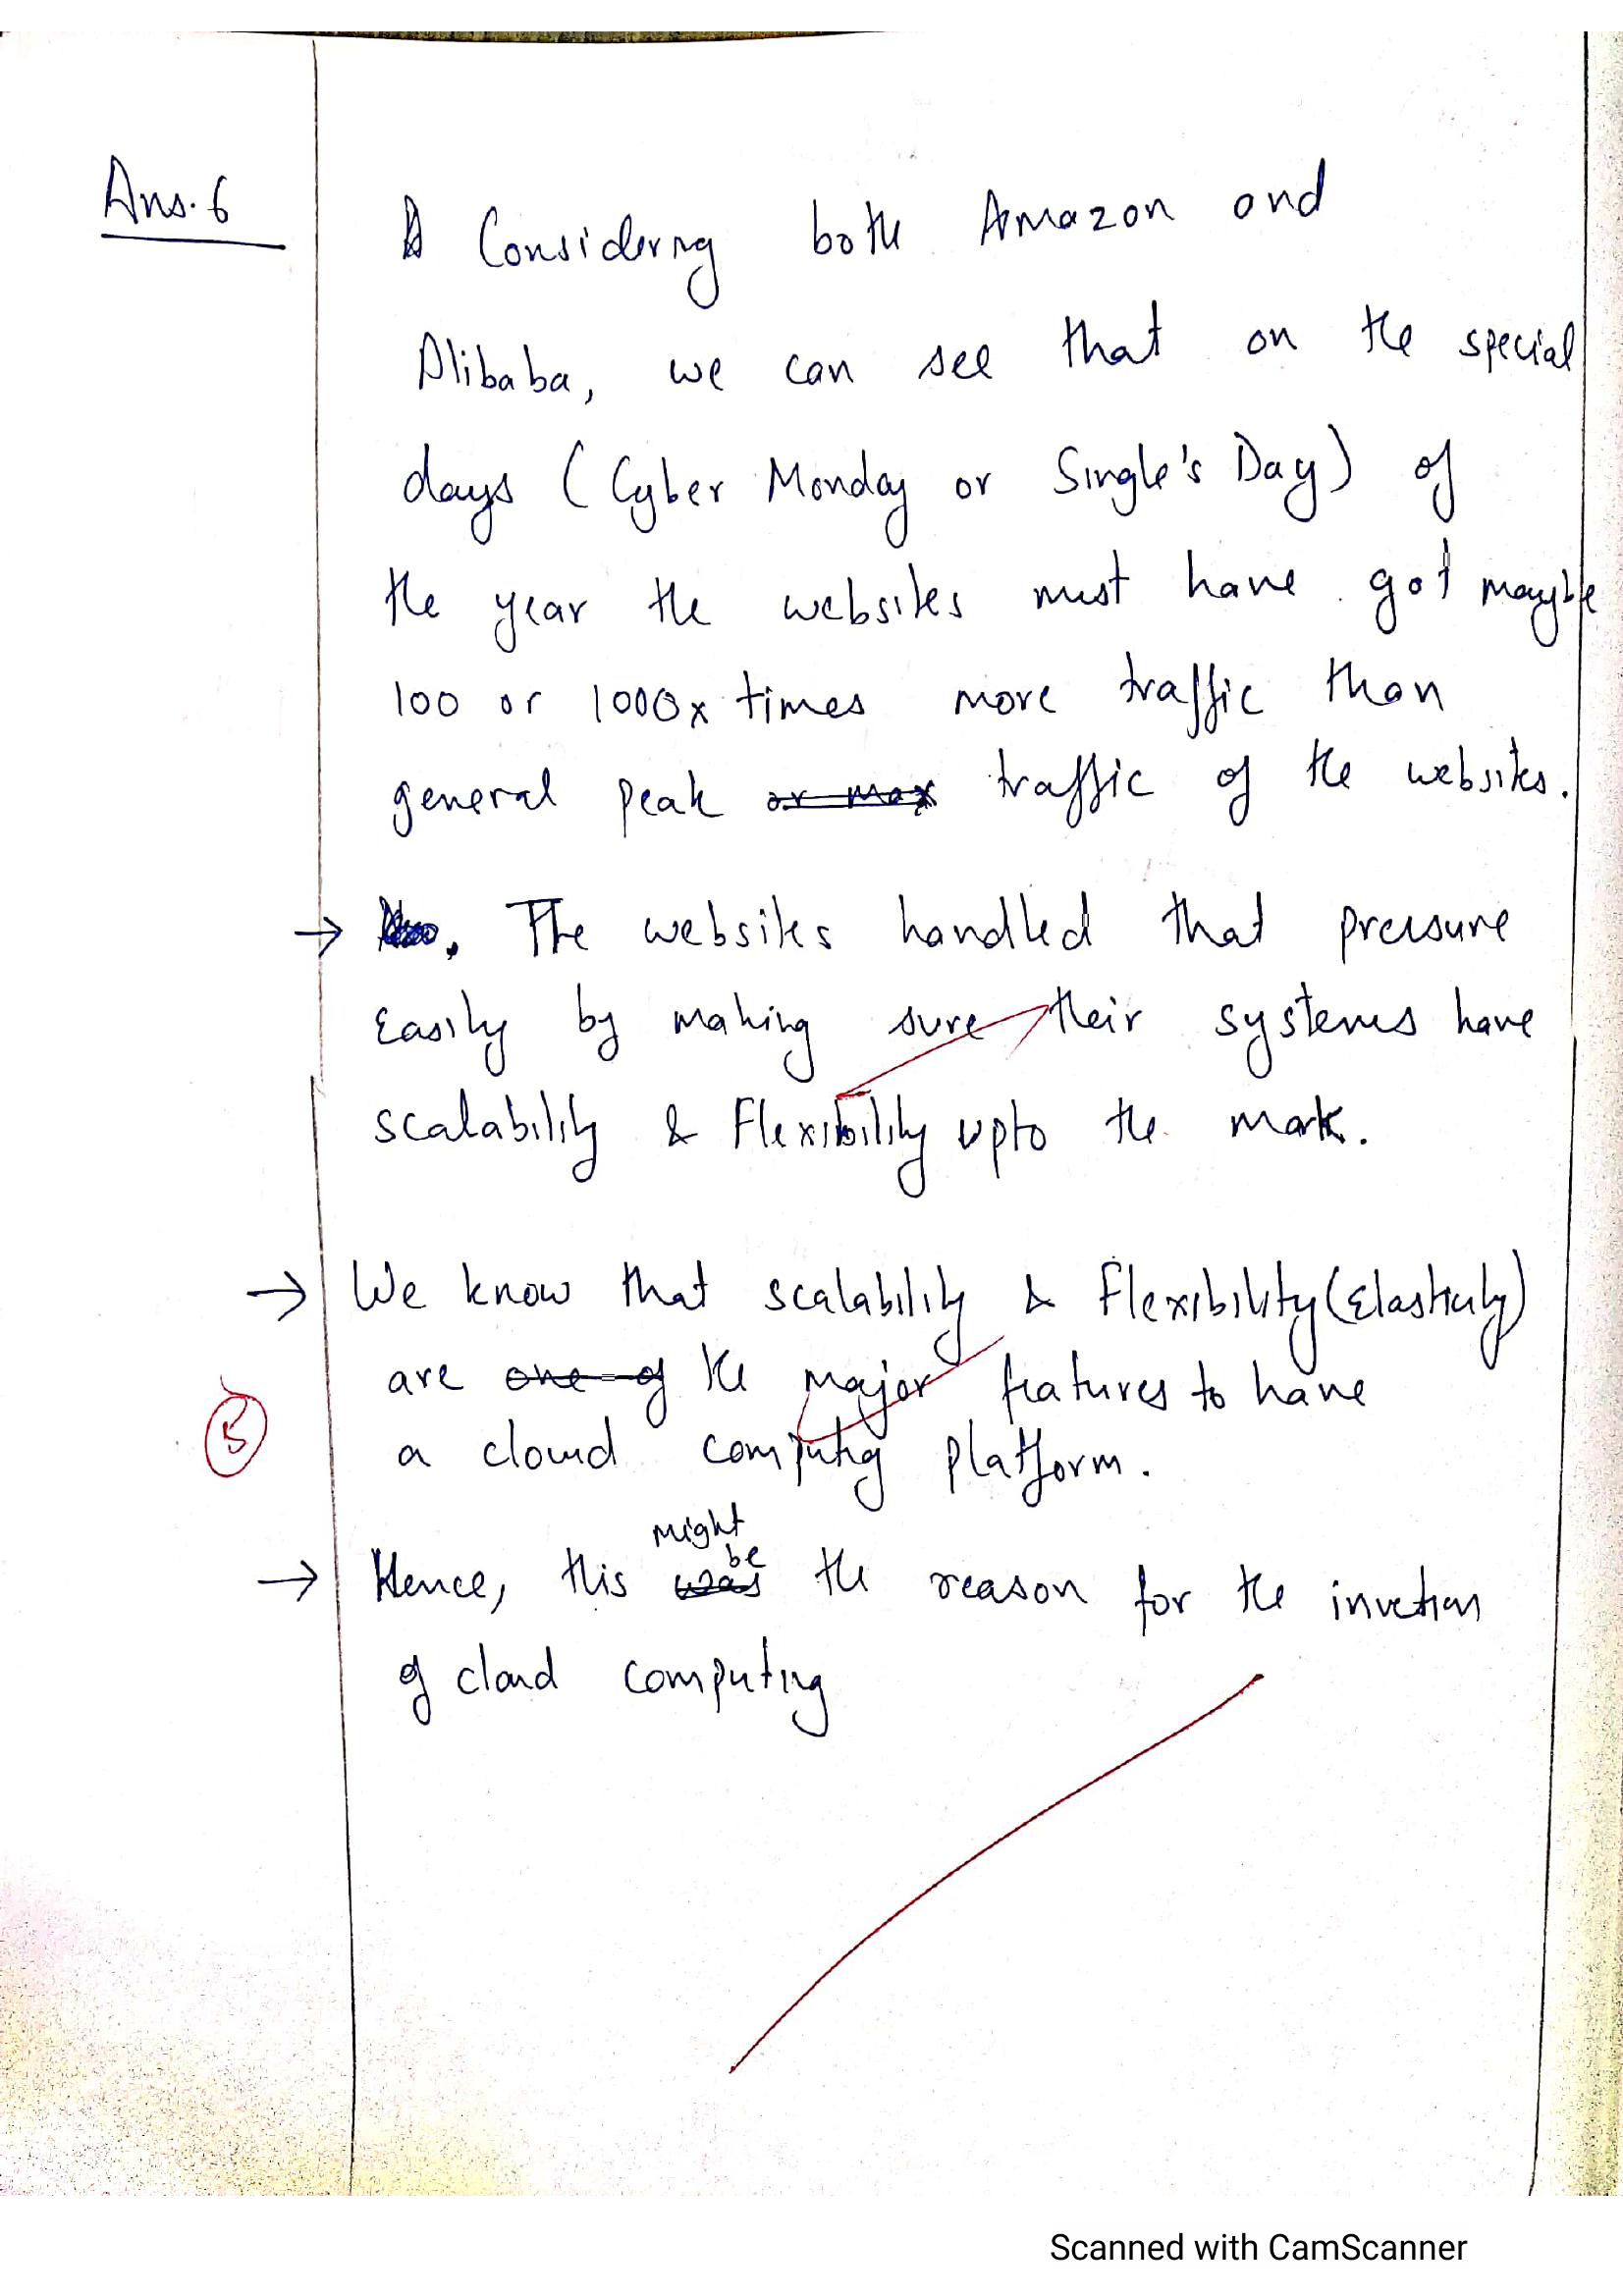 Ans.6
Considering both Amazon and
Alibaba, we can see that on the special
days (Cyber Monday or Single's Day) of
the year the websites must have got maybe
100 or 1000x times more traffic than
general peak or max traffic of the websites.
→ . The websites handled that pressure
Easily by making sure their systems have
scalability & Flexibility upto the mark.
→ We know that scalability & Flexibility (Elasticity)
are one of the major features to have
5
a cloud computing platform.
might be
→ Hence, this was the reason for the invetion
of cloud computing
Scanned with CamScanner